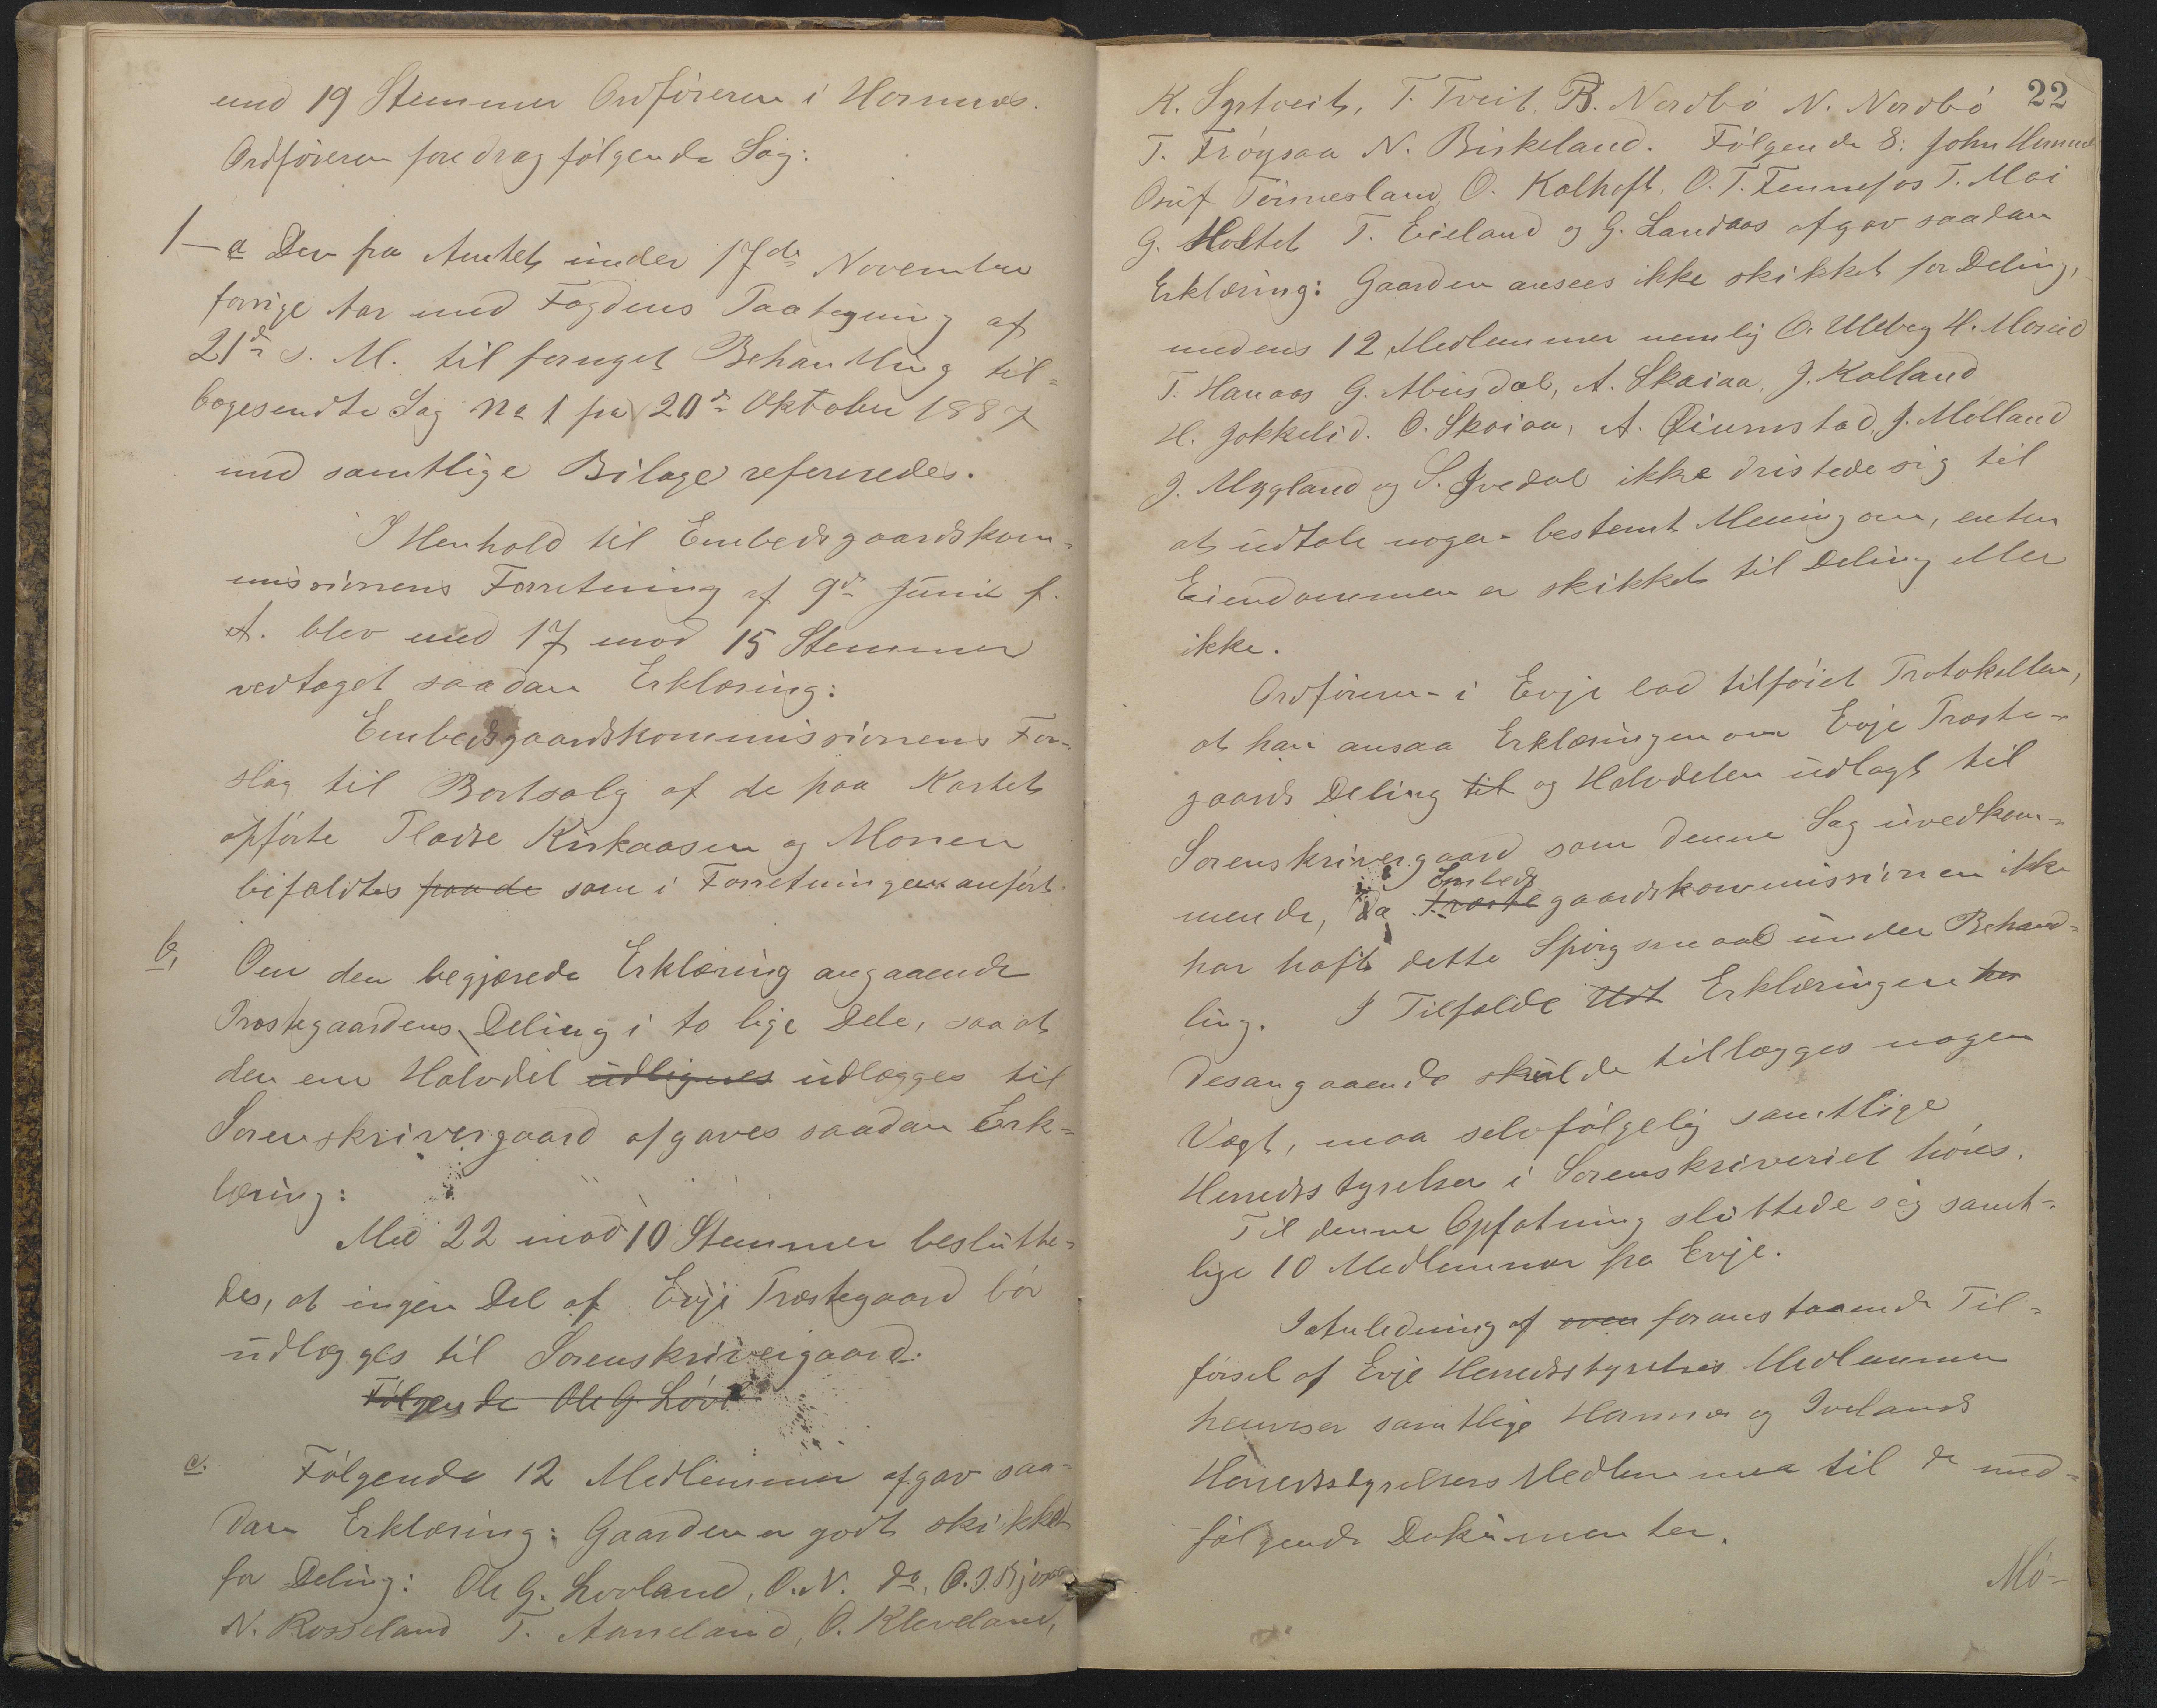 med 19 Stemmer Ordføreren i Hornnes.
Ordføreren foredrog følgende Sag:
1 - a Den fra Amtet under 17de November
forrige Aar med Fogdens Paategning af
21de s. M. til fornyet Behandling til=
bagesendte Sag No 1 fra 20de Oktober 1887
med samtlige Bilage refereredes.
I Henhold til Embedsgaardskom=
missionens Forretning af 9de Juni f.
A. blev med 17 mod 15 Stemmer
vedtaget saadan Erklæring:
Embedsgaardskommissionens For=
slag til Bortsalg af de paa Kartet
opførte Pladse Kirkaasen og Monen
bifaldtes paa de som i Forretningen anført.
b, Om den begjærede Erklæring angaaende
Præstegaardens Deling i to lige Dele, saa at
den ene Halvdel udlignes udlægges til
Sorenskrivergaard afgaves saadan Erk=
læring:
Med 22 mod 10 Stemmer beslutte=
des, at ingen Del af Evje Præstegaard bør
udlægges til Sorenskrivergaard.
Følgende Ole G. Løvl
c. Følgende 12 Medlemmer afgav saa=
dan Erklæring: Gaarden er godt skikket
for Deling: Ole G. Lovland, O. N. do, O. J. Kjetsaa
N. Rosseland T. Aaneland, O. Kleveland,
22
K. Syrtveit, T. Tveit, B. Nordbø N. Nordbø
T. Frøysaa N. Birkeland. Følgende 8: John
Tønnesland O. Kalhoft, O. T. Fennefos T. Moi
G. Holtet T. Eieland og G. Landaas afgav saadan
Erklæring: Gaarden ansees ikke skikket for Deling,
medens 12 Medlemmer nemlig O. Uleberg H. Moseid
T. Hanaas G. Abusdal, A. Skaiaa, J. Kolland
H. Jokkelid. O. Skaiaa, A. Øiumstad, J. Mølland
J. Mygland og S. Ivedal ikke dristede sig til
at udtale nogen bestemt Mening om, enten
Eiendommen er skikket til Deling eller
ikke.
Ordføreren i Evje lod tilføiet Protokollen,
at han ansaa Erklæringen om Evje Præste=
gaards Deling til og Halvdelen udlagt til
Sorenskrivergaard som denne Sag uvedkom=
mende, da Præste Embeds gaardskommissionen ikke
har haft dette Spørgsmaal under Behand=
ling. I Tilfælde Udt Erklæringen her
desangaaende skulde tillægges nogen
Vægt, maa selvfølgelig samtlige
Herredsstyrelser i Sorenskriveriet høres.
Til denne Opfatning sluttede sig samt=
lige 10 Medlemmer fra Evje.
I Anledning af oven foranstaaende Til=
førsel af Evje Herredsstyrelses Medlemmer
henviser samtlige Hornnes og Ivelands
Herredsstyrelsers Medlemmer til de med=
følgende Dokumenter.
Mø-